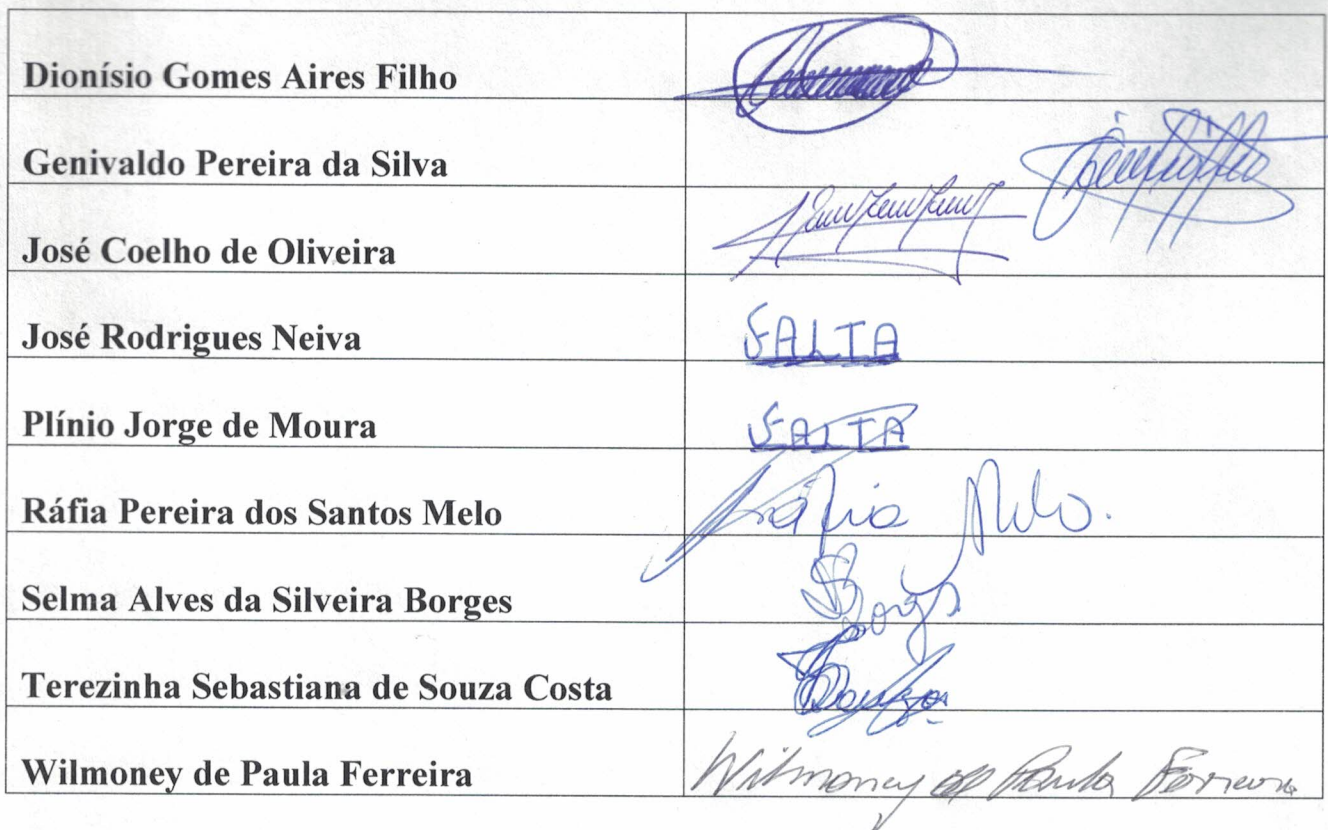 Dionísio Gomes Aires Filho
Genivaldo Pereira da Silva
José Coelho de Oliveira
José Rodrigues Neiva FALTA
Plínio Jorge de Moura FALTA
Ráfia Pereira dos Santos Melo Ráfia Melo.
Selma Alves da Silveira Borges SBorges
Terezinha Sebastiana de Souza Costa
Wilmoney de Paula Ferreira Wilmoney de Paula Ferreira